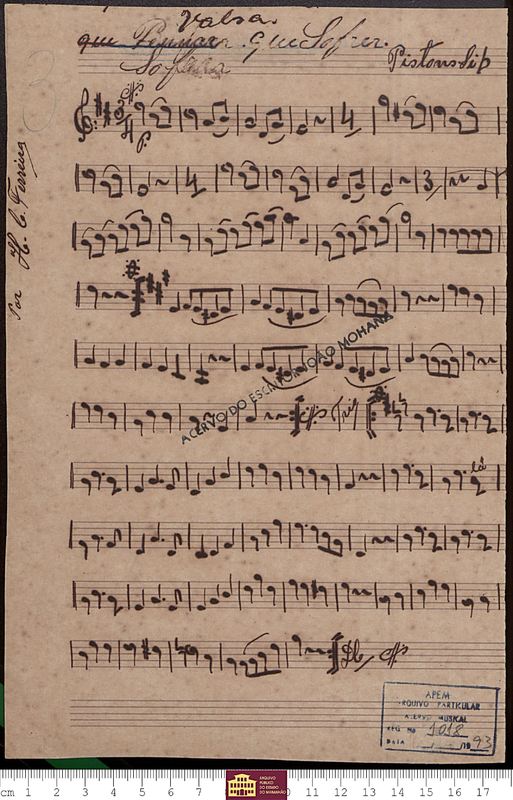 Valsa.
que Sofrer.
Pistons Sib
Por H. C. Ferreira
P.
4
4
3
ACERVO DO ESCRITOR JOÃO MOHANA
Trio
lá
APEM
ARQUIVO PARTICULAR
ACERVO MUSICAL
REG. No 1018
DATA / /1993
cm 1 2 3 4 5 6 7 8 10 11 12 13 14 15 16 17
ARQUIVO
PÚBLICO
DO ESTADO
DO MARANHÃO